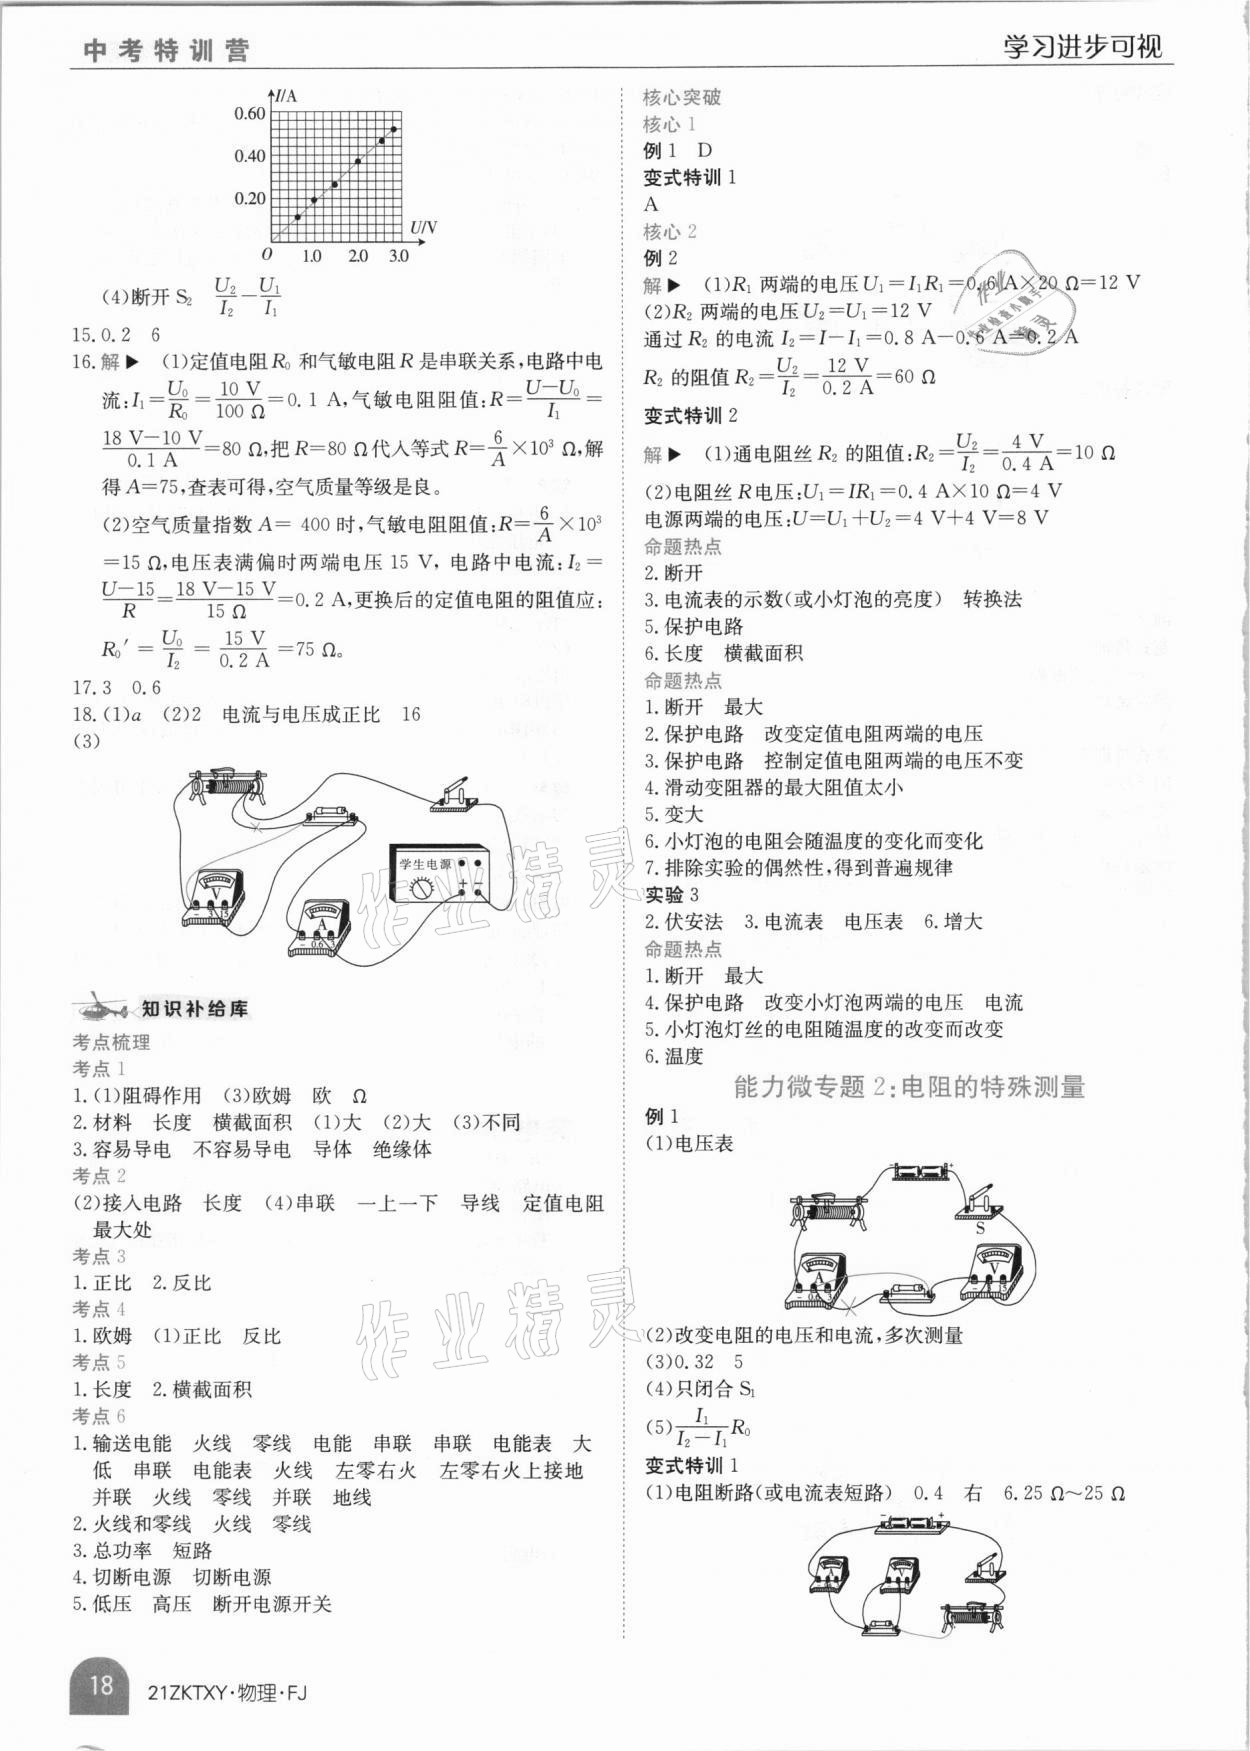 中考特训营
学习进步可视
I/A
0.60
0.40
0.20
U/V
O 1.0 2.0 3.0
(4)断开 S₂ U₂/I₂－U₁/I₁
15.0.2 6
16.解▶ (1)定值电阻 R₀ 和气敏电阻 R 是串联关系,电路中电
流:I₁＝U₀/R₀＝10 V/100 Ω＝0.1 A,气敏电阻阻值:R＝(U－U₀)/I₁＝
(18 V－10 V)/0.1 A＝80 Ω,把 R＝80 Ω代入等式 R＝6/A×10³ Ω,解
得 A＝75,查表可得,空气质量等级是良。
(2)空气质量指数 A＝ 400 时,气敏电阻阻值:R＝6/A×10³
＝15 Ω,电压表满偏时两端电压 15 V, 电路中电流:I₂＝
(U－15)/R＝(18 V－15 V)/15 Ω＝0.2 A,更换后的定值电阻的阻值应:
R₀′＝U₀/I₂＝15 V/0.2 A＝75 Ω。
17.3 0.6
18.(1)a (2)2 电流与电压成正比 16
(3)
学生电源
＋ －
V
－ 3 15
A
－ 0.6 3
知识补给库
考点梳理
考点 1
1.(1)阻碍作用 (3)欧姆 欧 Ω
2.材料 长度 横截面积 (1)大 (2)大 (3)不同
3.容易导电 不容易导电 导体 绝缘体
考点 2
(2)接入电路 长度 (4)串联 一上一下 导线 定值电阻
最大处
考点 3
1.正比 2.反比
考点 4
1.欧姆 (1)正比 反比
考点 5
1.长度 2.横截面积
考点 6
1.输送电能 火线 零线 电能 串联 串联 电能表 大
低 串联 电能表 火线 左零右火 左零右火上接地
并联 火线 零线 并联 地线
2.火线和零线 火线 零线
3.总功率 短路
4.切断电源 切断电源
5.低压 高压 断开电源开关
18
21ZKTXY·物理·FJ
核心突破
核心 1
例 1 D
变式特训 1
A
核心 2
例 2
解▶ (1)R₁ 两端的电压 U₁＝I₁R₁＝0.6 A×20 Ω＝12 V
(2)R₂ 两端的电压 U₂＝U₁＝12 V
通过 R₂ 的电流 I₂＝I－I₁＝0.8 A－0.6 A＝0.2 A
R₂ 的阻值 R₂＝U₂/I₂＝12 V/0.2 A＝60 Ω
变式特训 2
解▶ (1)通电阻丝 R₂ 的阻值:R₂＝U₂/I₂＝4 V/0.4 A＝10 Ω
(2)电阻丝 R电压:U₁＝IR₁＝0.4 A×10 Ω＝4 V
电源两端的电压:U＝U₁＋U₂＝4 V＋4 V＝8 V
命题热点
2.断开
3.电流表的示数(或小灯泡的亮度) 转换法
5.保护电路
6.长度 横截面积
命题热点
1.断开 最大
2.保护电路 改变定值电阻两端的电压
3.保护电路 控制定值电阻两端的电压不变
4.滑动变阻器的最大阻值太小
5.变大
6.小灯泡的电阻会随温度的变化而变化
7.排除实验的偶然性,得到普遍规律
实验 3
2.伏安法 3.电流表 电压表 6.增大
命题热点
1.断开 最大
4.保护电路 改变小灯泡两端的电压 电流
5.小灯泡灯丝的电阻随温度的改变而改变
6.温度
能力微专题 2:电阻的特殊测量
例 1
(1)电压表
－ ＋
S
A
－ 0.6 3
V
－ 3 15
(2)改变电阻的电压和电流,多次测量
(3)0.32 5
(4)只闭合 S₁
(5)I₁/(I₂－I₁)R₀
变式特训 1
(1)电阻断路(或电流表短路) 0.4 右 6.25 Ω～25 Ω
－ ＋
A
V
作业精灵
作业精灵
作业
精灵